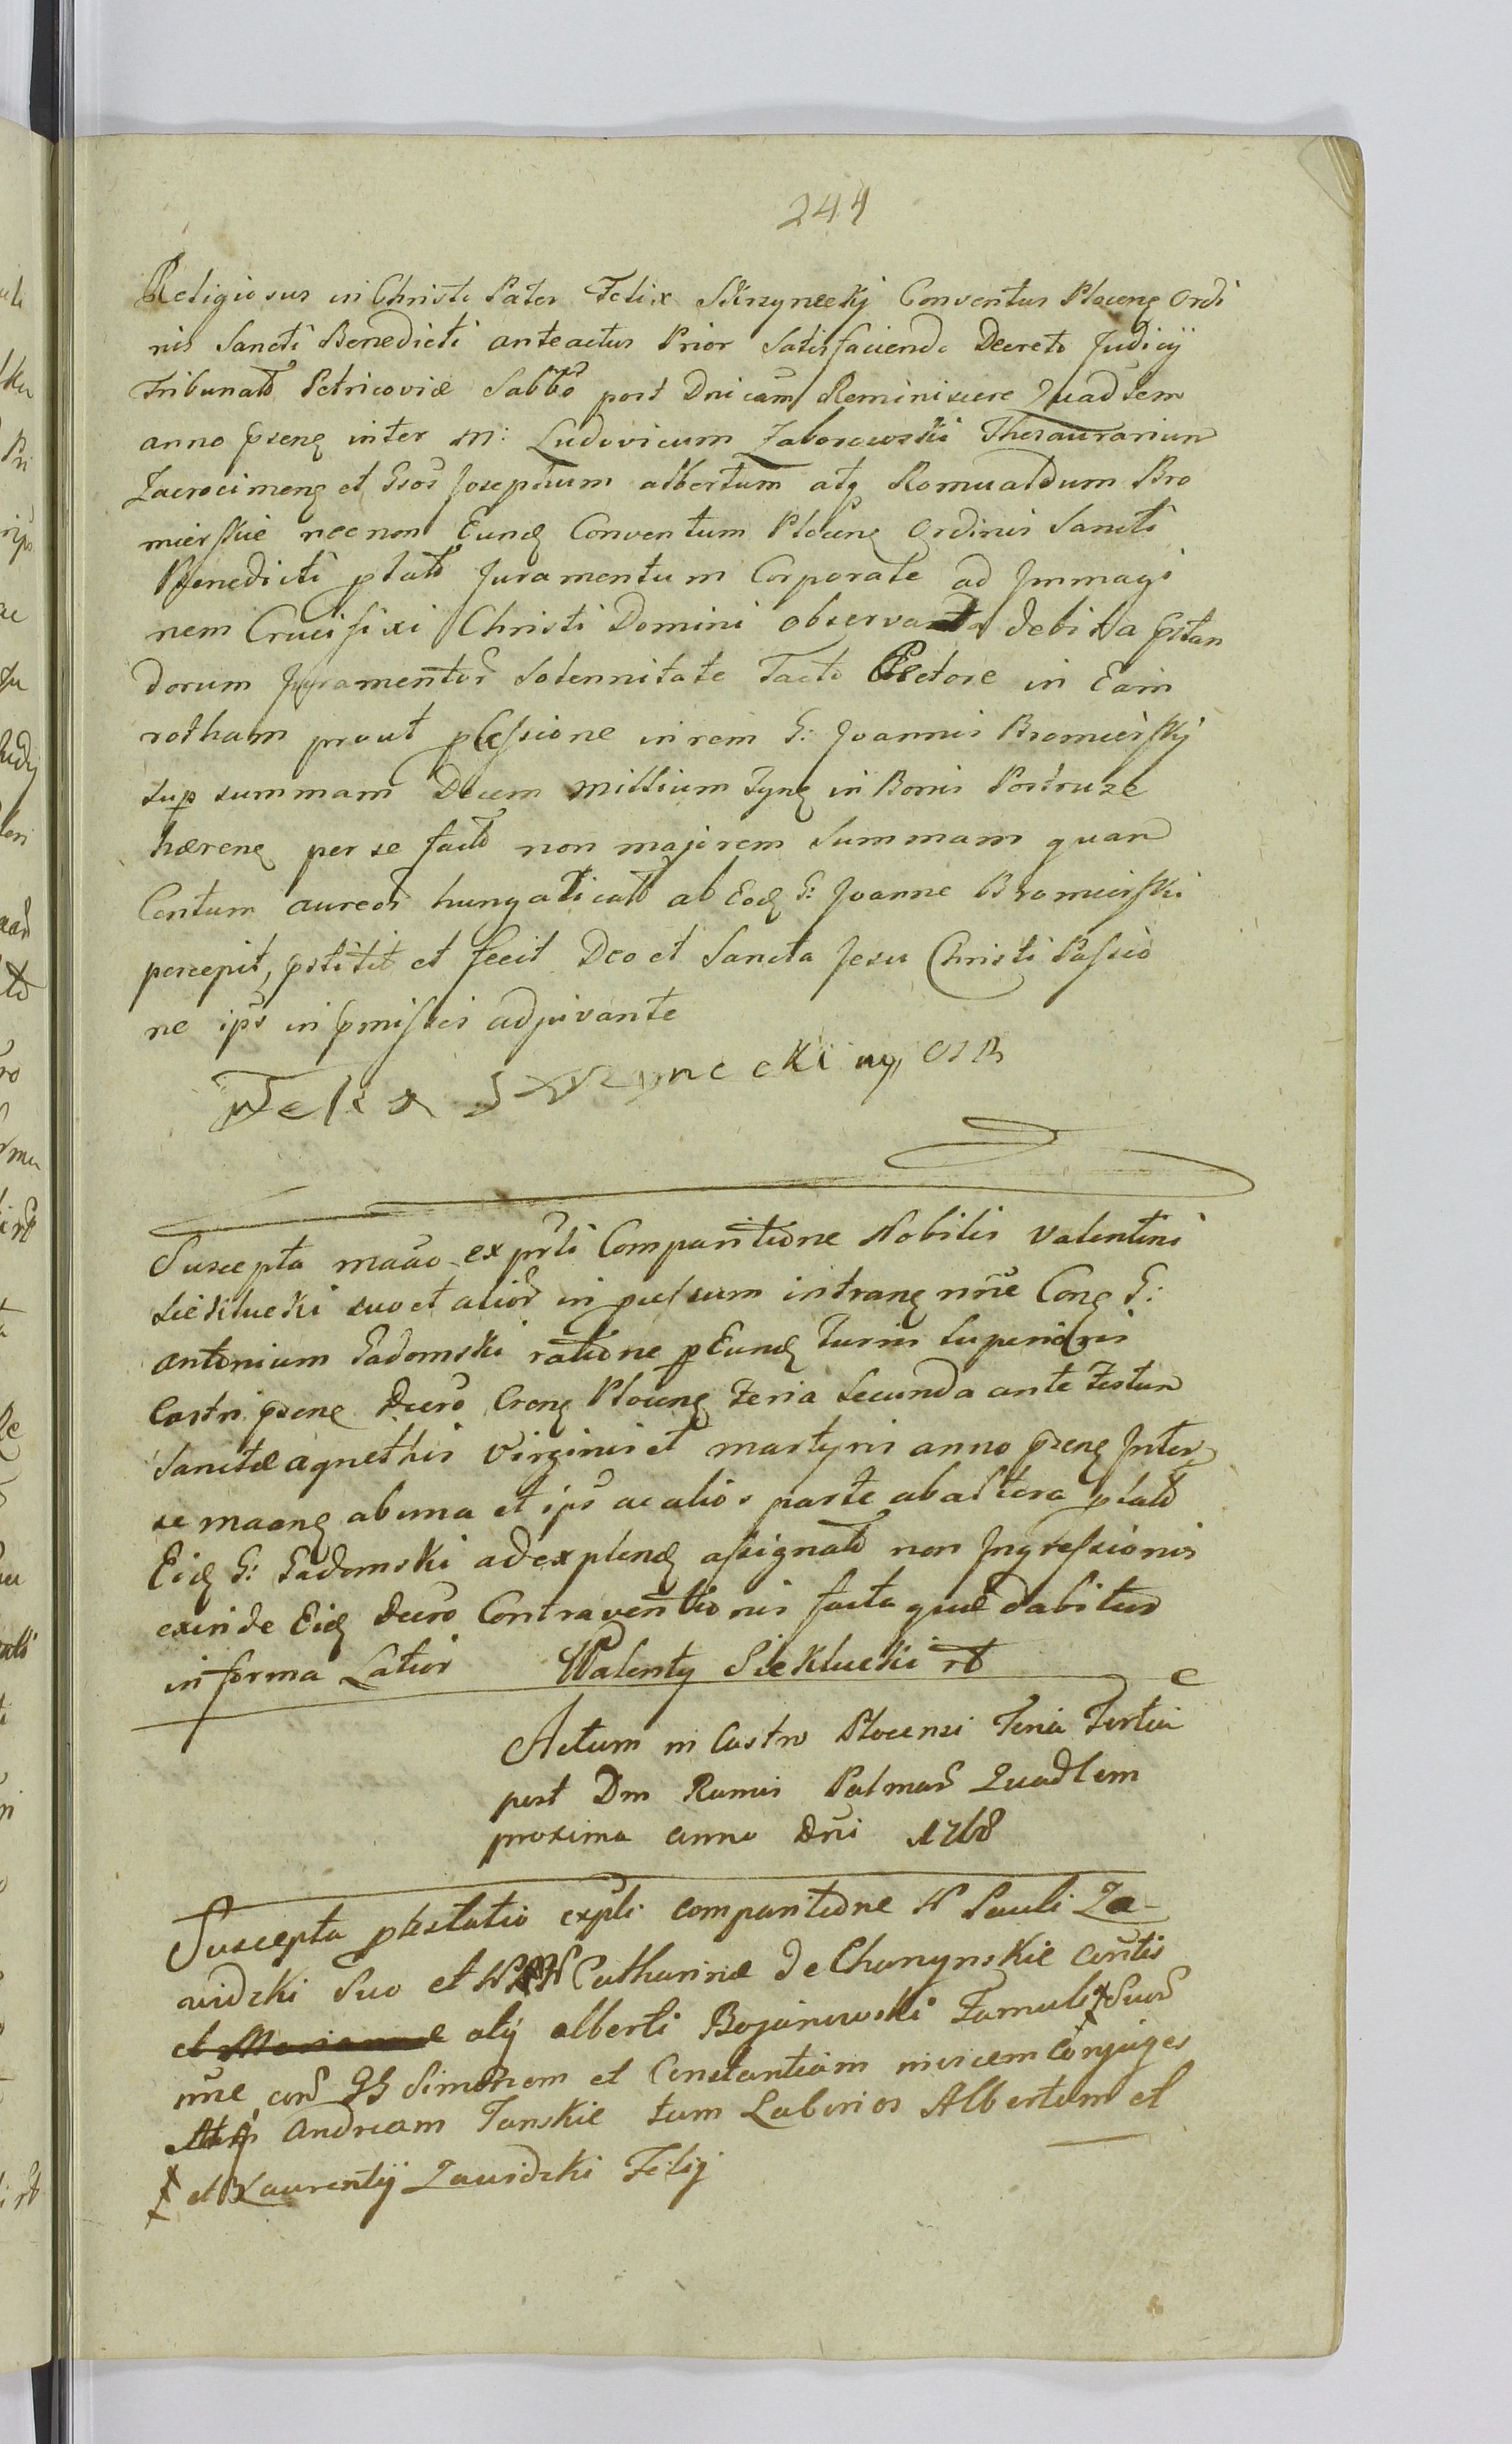 244
Religiosus in Christo Pater Felix Skrzynecki Conventus Plocenẽ Ordi
nis Sancti Benedicti anteactus Prior Satisfaciendo Decreto Judicij
Tribunałł Petricoviæ Sabbõ post Dnicam Reminiscere Quadlem
anno pseñe inter M: Ludovicum Zaborowski Thesaurarium
Zacrocimeñ et Gsos Josephum Albertum atq Romualdum Bro
mierskie necnon Eund Conventum Ploceñ Ordinis Sancti
Benedicti plato Juramentum Corporale ad Jmmagi
nem Crucifixi Christi Domini observata debita pstan
dorum Juramentor Solennitate Tacto Pectore in Eam
rotham prout pro Cessione in rem G: Joannis Bromierskij
sup summam Decem Millium Tyn in Bonis Postruze
hæren per se facto non majorem Summam quam
Centum aureor hungaricall ab Eod G: Joanne Bromierski
percepit, pstitit et fecit Deo et Sancta Jesu Christi Passio
ne ips in pmissis adjuvante
Felix Skrzynecki mp OSB
Suscepta maõo ex prti Comparitione Nobilis Valentini
Sieklucki suo et alior in pulsum intrañ nne Coñ G:
Antonium Sadomski ratione p Eund Turris Superioris
Castri pseñ Decro Creñ Ploceñ Feria Secunda ante Festum
Sanctæ Agnethis Virginis et Martyris anno pseñ Inter
se maañ ab una et ips ac alios parte ab altera plato
Eid G: Sadomski ad explend assignato non Ingressionis
exinde Eid Decro Contraventionis facta quæ dabitur
in forma Latior Walenty Sieklucki
Actum in Castro Plocensi Feria Tertia
post Dm Ramis Palmar Quadlem
proxima anno Dni 1768
Suscepta ptestatio ex pti comparitione N Pauli Za-
widzki Suo et N Catharinæ de Chonynskie contis
et Mariannæ atq Alberti Bojanowski Famuli Suor
nne con GG Simonem et Constantiam invicem Conjuges
Andream Tanskie tum Laborios Albertum et
et Laurentij Zawidzki Filij